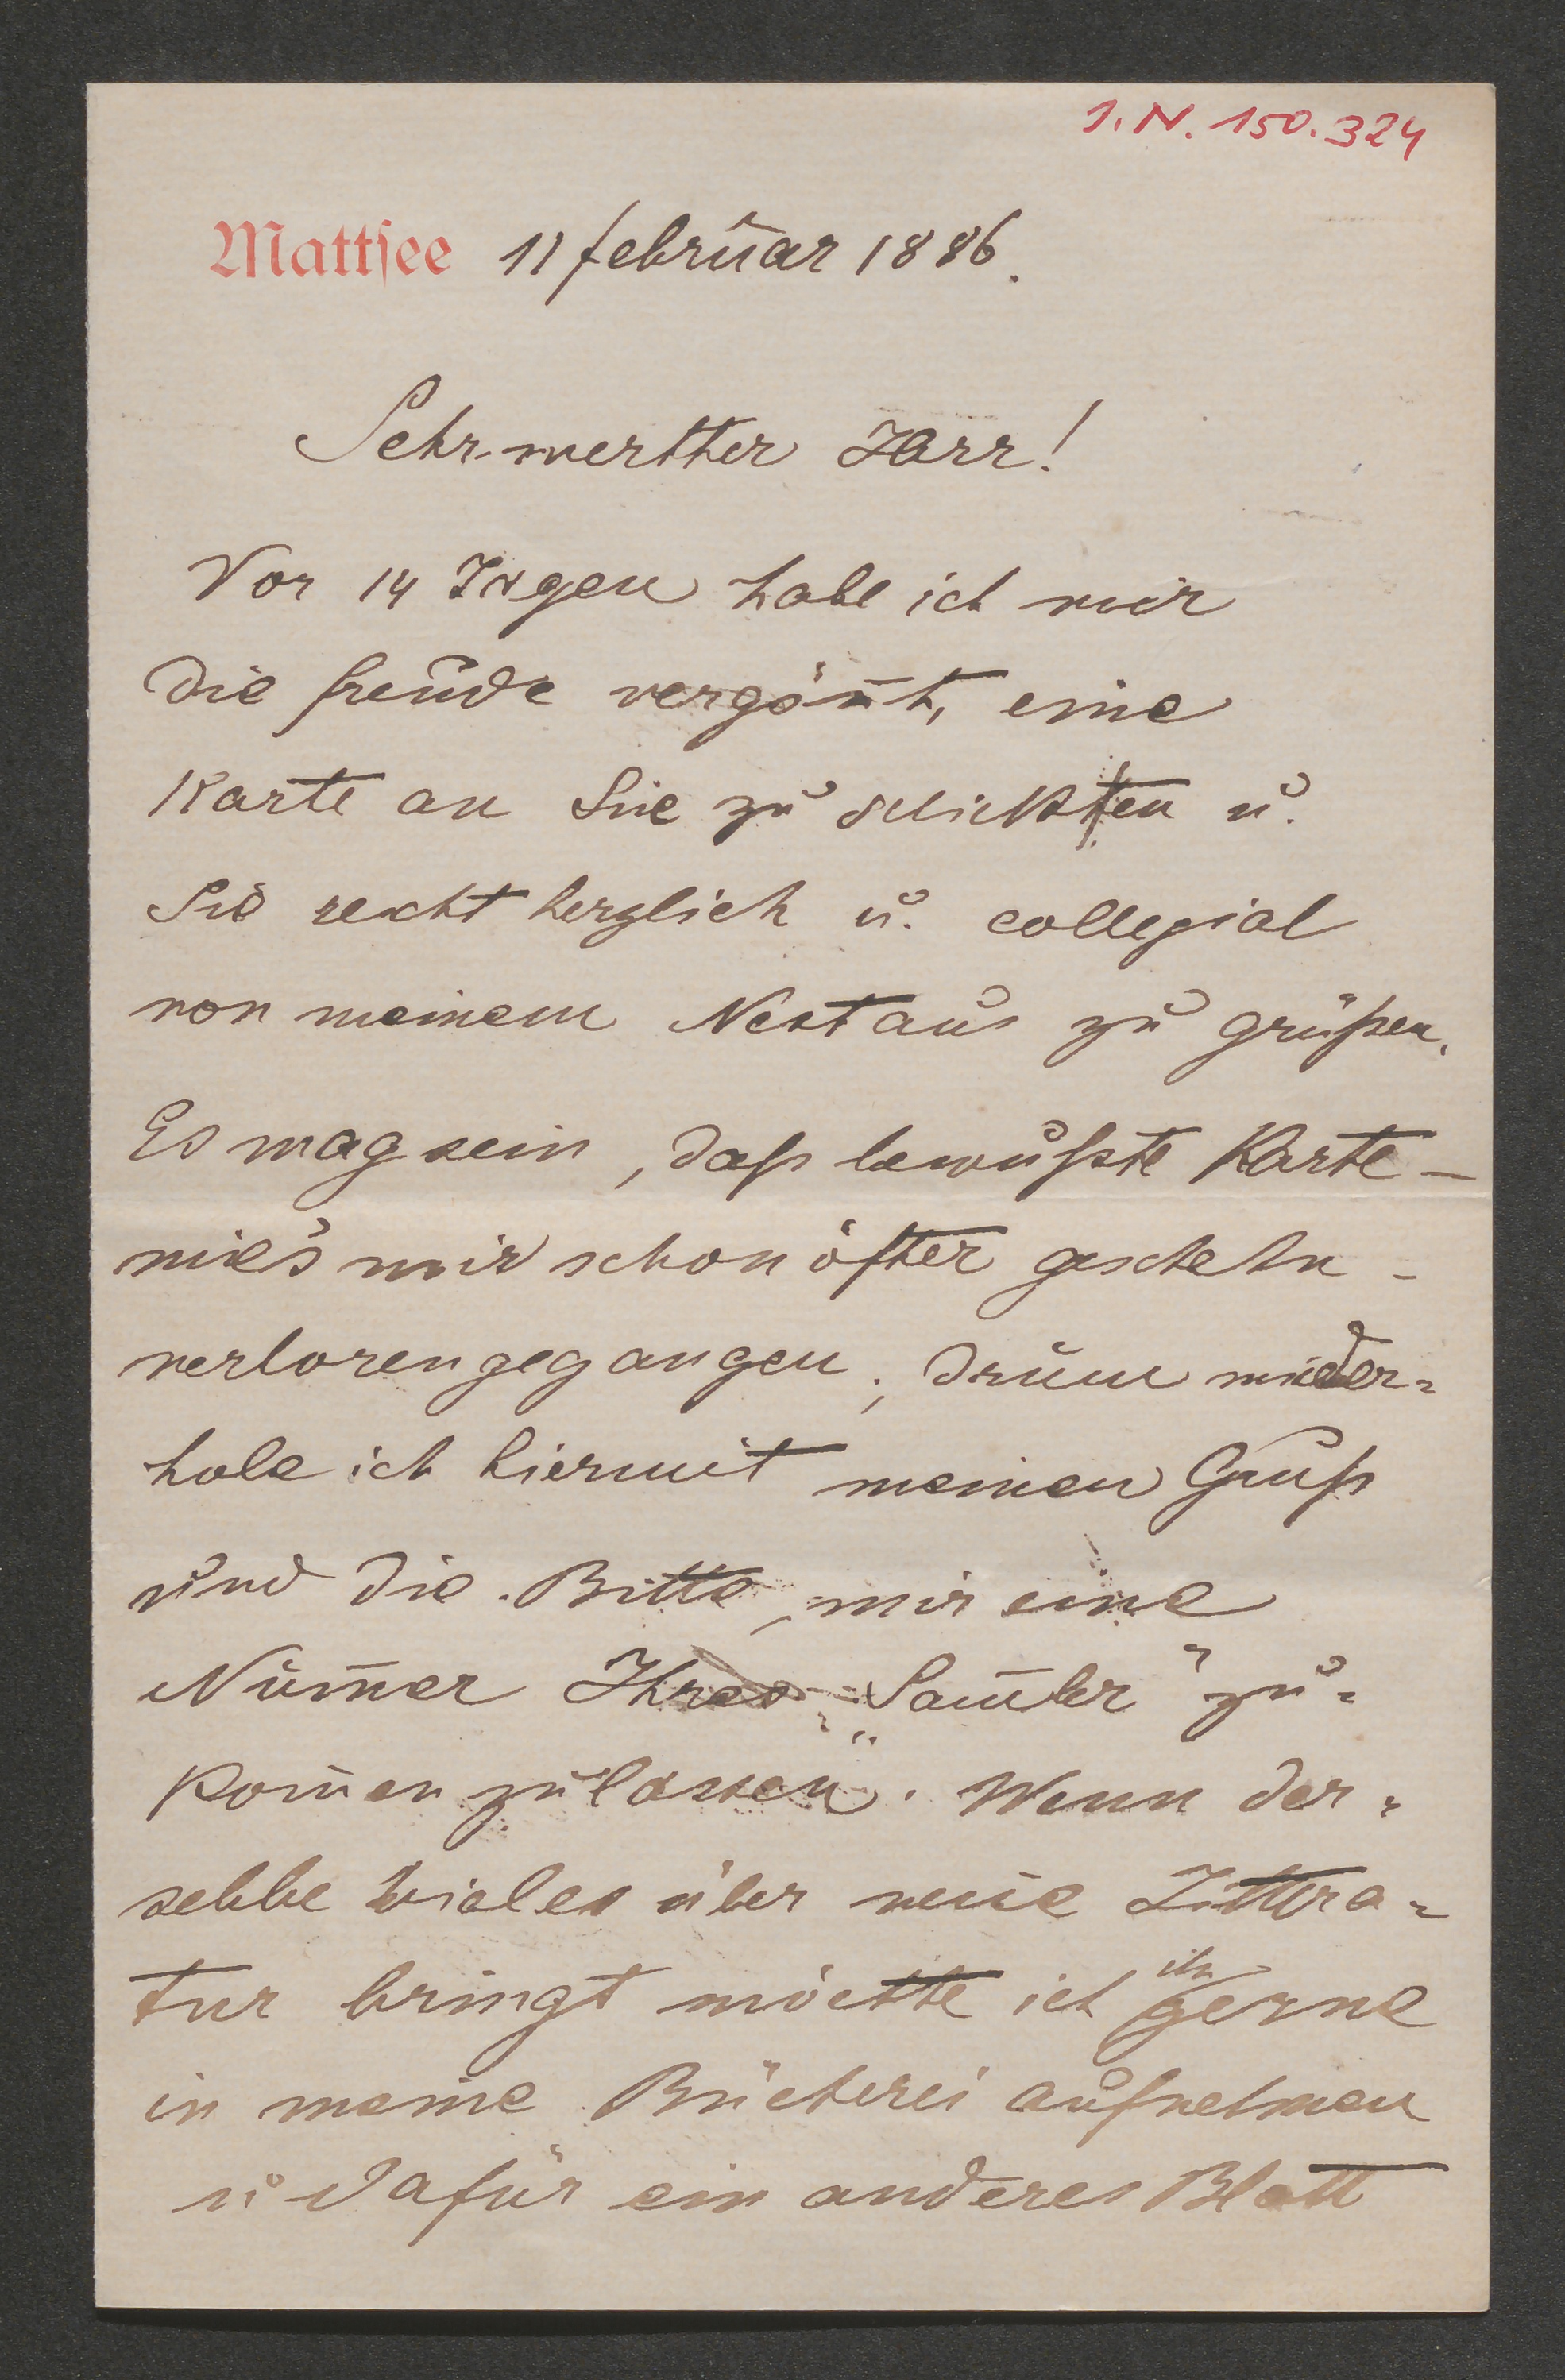 I.N. 150.324
Mattsee 11 Februar 1886.
Sehr werther Herr!
Vor 14 Tagen habe ich mir
die Freude vergönnt, eine
Karte an Sie zu schicken u.
Sie recht herzlich u. collegial
von meinem Nest aus zu grüßen.
Es mag sein, daß bewußte Karte –
wie's mir schon öfter geschehn –
verloren gegangen; drum wieder=
hole ich hiermit meinen Gruß
und die Bitte, mir eine
Numer Ihres „Samler" zu=
komen zu lassen. Wenn der=
selbe vieles über neue Littera=
tur bringt möchte ich ihn gerne
in meine Bücherei aufnehmen
u dafür ein anderes Blatt